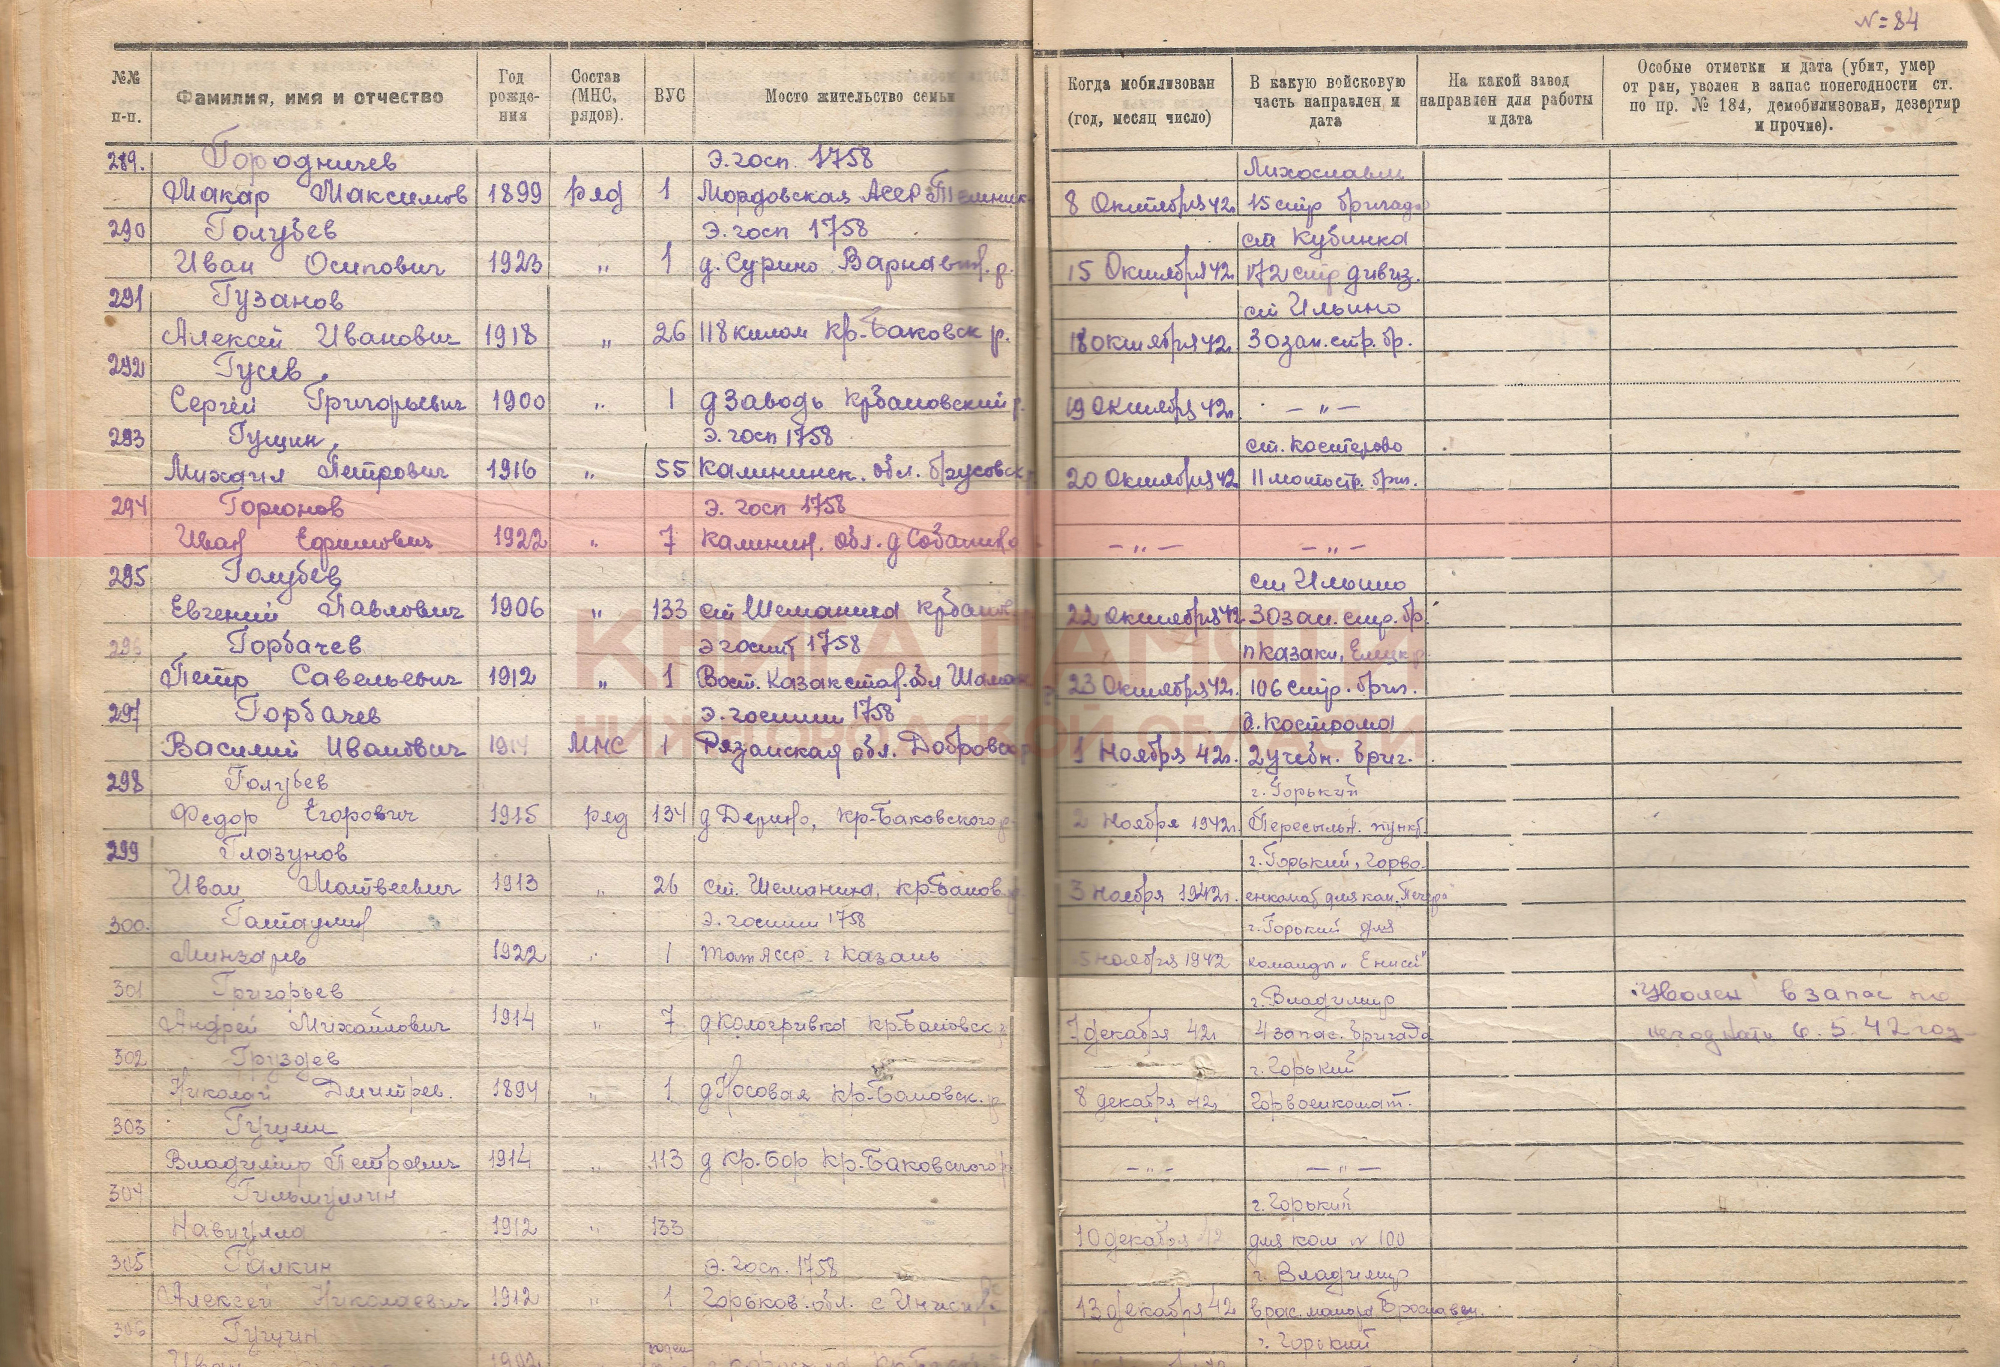 N=84
№№ п-п.
Фамилия, имя и отчество
Год рожде- ния
Состав (МНС, рядов).
ВУС
Мосто жительство семьи
Когда мобилизован (год, месяц число)
В какую войсковую часть направлен и дата
На какой завод направлен для работы и дата
Особые отметки и дата (убит, умер от ран, уволен в запас понегодности ст. по пр. № 184, демобилизован, дезертир и прочие).
289. Городничев Э. госп. 1758 Лихославль
Макар Максимов 1899 ряд 1 Мордовская АССР 8 Октября 42г. 15 стр бригада
290 Голубев Э. госп 1758 ст Кубинка
Иван Осипович 1923 „ 1 д. Сурино Варнавин. р. 15 Октября 42 172 стр дивиз.
291 Гузанов ст Ильино
Алексей Иванович 1918 „ 26 118 килом Кр-Баковск р. 18 октября 42г. 30 зап. стр. бр.
292 Гусев
Сергей Григорьевич 1900 „ 1 д Заводь Кр Баковский р. 19 Октября 42г. — „ —
293 Гущин Э. госп 1758 ст. Костерово
Михаил Петрович 1916 „ 55 Калининск. обл. 20 Октября 42 11 мотостр. бриг.
294 Горюнов Э. госп 1758
Иван Ефимович 1922 „ 7 Калинин. обл. д — „ — — „ —
295 Голубев ст Ильино
Евгений Павлович 1906 „ 133 ст Шеманиха Кр Баков 22 октября 42 30 зап. стр. бр.
296 Горбачев Э госпит 1758 п Казаки, Елецк р.
Петр Савельевич 1912 „ 1 Вост. Казакстан. обл 23 Октября 42г. 106 стр. бриг.
297 Горбачев Э. госпит 1758 г. Кострома
Василий Иванович 1914 МНС 1 Рязанская обл. 1 Ноября 42г. 2 учебн. бриг.
298 Голубев г. Горький
Федор Егорович 1915 ряд 134 д Дерино, Кр-Баковского р. 2 Ноября 1942г. Пересыльн. пункт
299 Глазунов г. Горький, Горво-
Иван Матвеевич 1913 „ 26 ст. Шеманиха, Кр-Баков. р 3 Ноября 1942г. енкомат для ком.
300. Э. госпит 1758 г. Горький для
1922 „ 1 Тат АССР г Казань 5 Ноября 1942 команды „Енисей"
301 Григорьев г. Владимир Уволен в запас по
Андрей Михайлович 1914 „ 7 д Кологривка Кр-Баковск. р. 7 декабря 42г 4 запас. бригада негодности 6. 5. 42 год
302 Груздев г. Горький
Николай Дмитрев. 1894 „ 1 д Носовая Кр-Баковск. р 8 декабря 42г Горвоенкомат.
303 Гущин
Владимир Петрович 1914 „ 113 д Кр. Бор Кр-Баковского р — „ — — „ —
304 Гильмуллин г. Горький
1912 „ 133 10 декабря 42 для ком N 100
305 Галкин Э. госп. 1758 г. Владимир
Алексей Николаевич 1912 „ 1 Горьков. обл. 13 декабря 42
306 Гущин г. Горький
Иван
КНИГА ПАМЯТИ
НИЖЕГОРОДСКОЙ ОБЛАСТИ